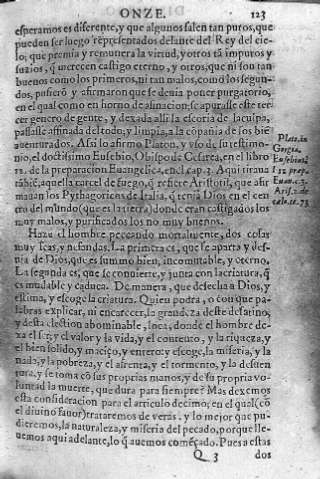 ONZE. 123
esperamos es diferente, y que algunos salen tan puros, que
pueden ser luego representados delante del Rey del cie-
lo, que premia y remunera la virtud, y otros tã impuros y
suzios, q̃ merecen castigo eterno, y otros, que ni son tan
buenos como los primeros, ni tan malos, como los segun-
dos, pusierõ y afirmaron que se deuia poner purgatorio,
en el qual como en horno de afinacion, se apurasse este ter-
cer genero de gente, y dexada alli la escoria de la culpa,
passasse afinada del todo, y limpia, a la cõpañia de los biẽ
auenturados. Assi lo afirmo Platon, y vso de su testimo-
nio, el doctissimo Eusebio, Obispo de Cesarea, en el libro
12. de la preparacion Euangelica, en el cap. 3. Aqui tirana
tãbiẽ, aquella carcel de fuego, q̃ refiere Aristotil, que afir
mauan los Pythagoricos de Italia, q̃ tenia Dios en el cen
tro del mundo (que es la tierra) donde eran castigados los
muy malos, y purificados los no muy buenos.
Plato. in
Gorgia,
Eusebius
12 prep.
Euan. c. 3.
Arist. 2. de
cælo. tc. 73
Haze el hombre peccando mortalmente, dos cosas
muy feas, y nefandas. La primera es, que se aparta y des-
uia de Dios, que es summo bien, incomutable, y eterno.
La segunda es, que se conuierte, y junta con la criatura, q̃
es mudable y caduca. De manera, que desecha a Dios, y
estima, y escoge la criatura. Quien podra, o con que pa-
labras explicar, ni encarecer, la grandeza deste desatino,
y desta election abominable, loca, donde el hombre de-
xa el ser, y el valor y la vida, y el contento, y la riqueza, y
el bien solido, y maciço, y entero: y escoge, la miseria, y la
nada, y la pobreza, y el afrenta, y el tormento, y la desuen
tura, y se toma cõ sus proprias manos, y de su propria vo-
luntad la muerte, que dura para siempre? Mas dexemos
esta consideracion para el articulo decimo, en el qual (cõ
el diuino fauor) trataremos de veras, y lo mejor que pu-
dieremos, la naturaleza, y miseria del pecado, porque lle-
uemos aqui adelante, lo q̃ auemos comẽçado. Pues a estas
Q 3 dos